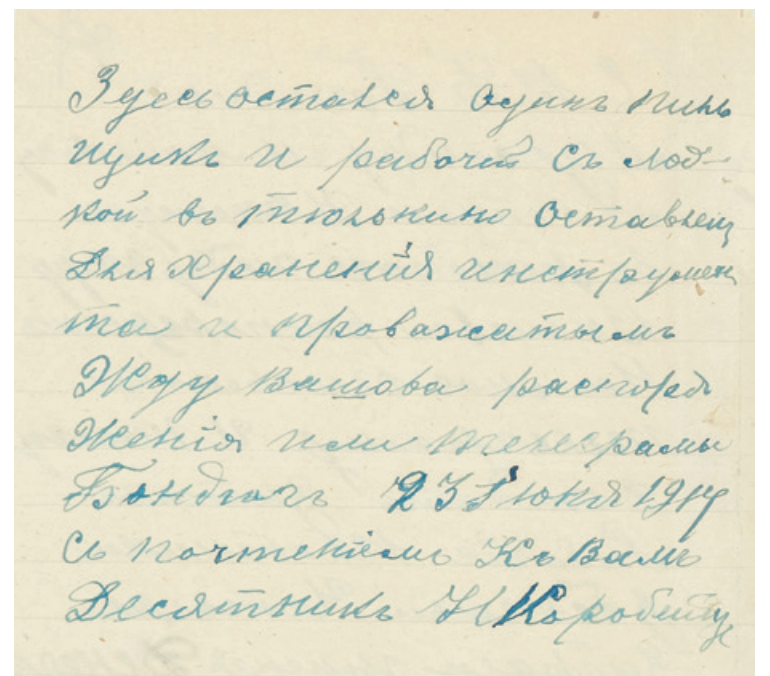 Здесь остался одинъ пиль
щикъ и рабочій съ лод-
кой въ Тюлькино оставлен
Для хранения инструмен
та и проважатымъ
Жду вашова распоря
Женія или телеграмы
Бондюгъ 23 Іюня 1917
Съ почтеніемъ Къ Вамъ
Десятникъ Н